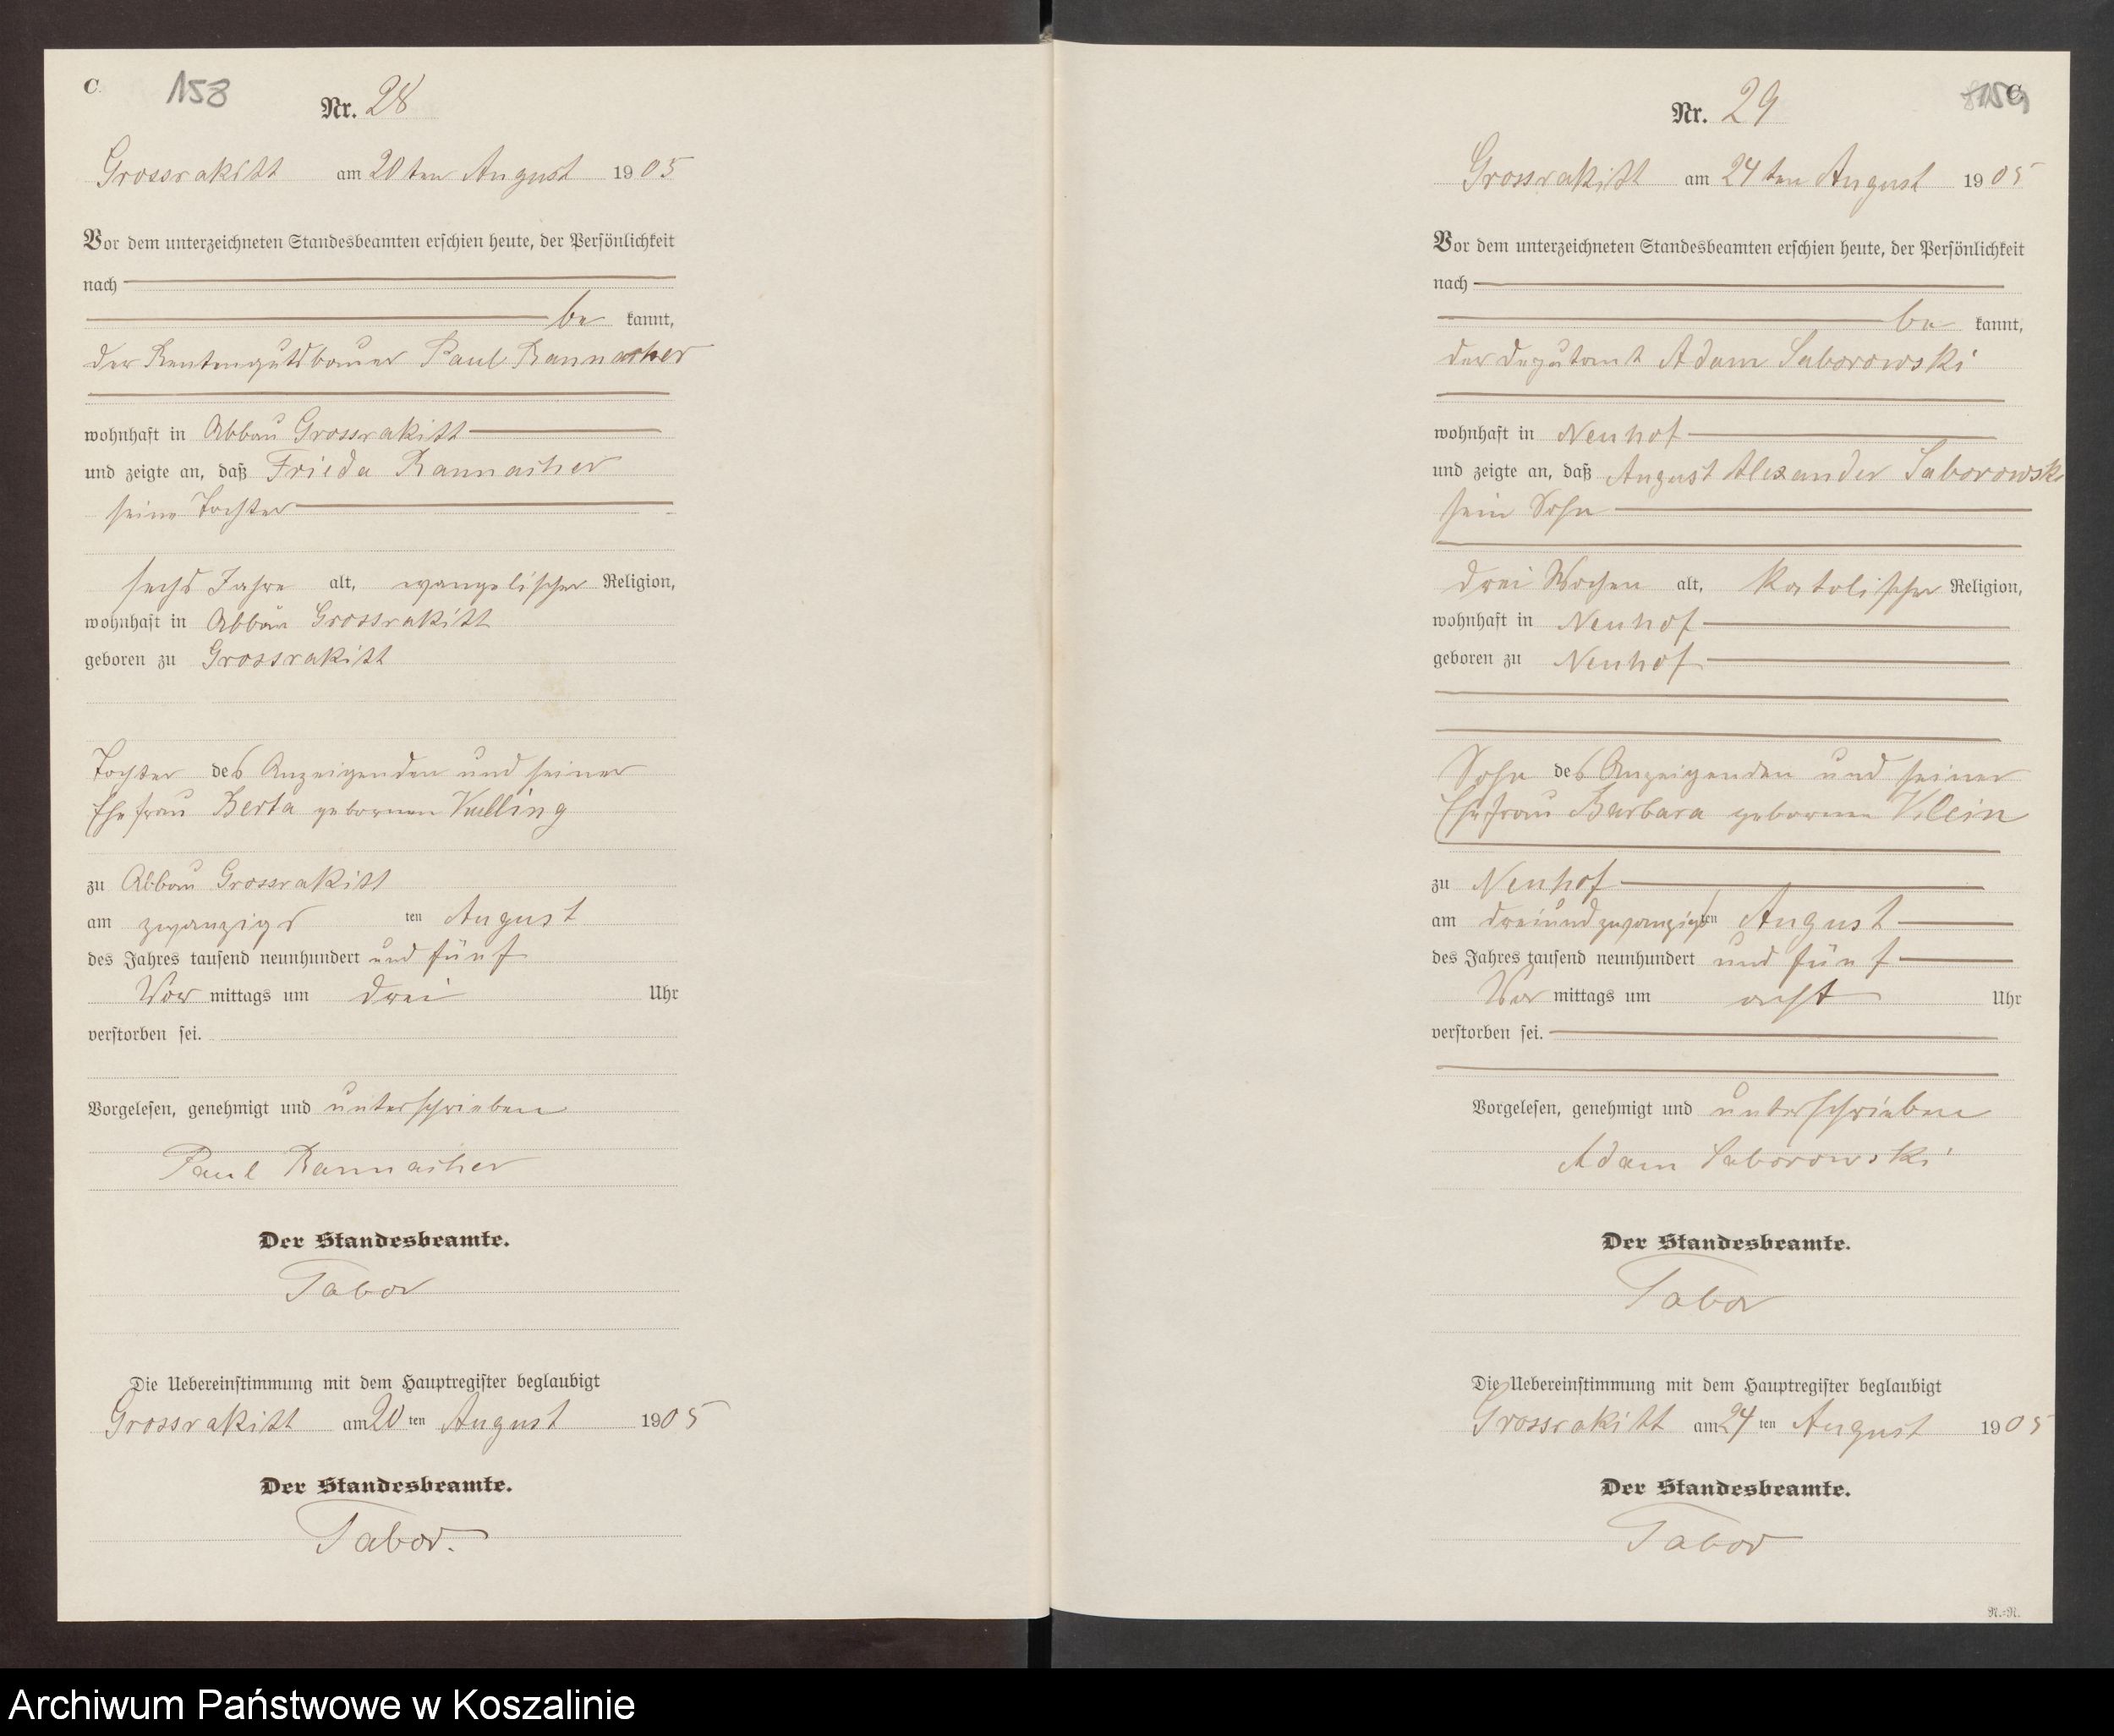 C.
158
Nr. 28
Grossrakitt am 20ten August 1905
Vor dem unterzeichneten Standesbeamten erschien heute, der Persönlichkeit
nach
be kannt,
der Rentengutsbauer Paul Rannacher
wohnhaft in Abbau Grossrakitt
und zeigte an, daß Frieda Rannacher
seine Tochter
sechs Jahre alt, evangelischer Religion,
wohnhaft in Abbau Grossrakitt
geboren zu Grossrakitt
Tochter des Anzeigenden und seiner
Ehefrau Berta gebornen
zu Abbau Grossrakitt
am zwanzigs ten August
des Jahres tausend neunhundert und fünf
Vor mittags um drei Uhr
verstorben sei.
Vorgelesen, genehmigt und unterschrieben
Paul Rannacher
Der Standesbeamte.
Tabor
Die Uebereinstimmung mit dem Hauptregister beglaubigt
Grossrakitt am 20 ten August 1905
Der Standesbeamte.
Tabor.
C.
159
Nr. 29
Grossrakitt am 24ten August 1905
Vor dem unterzeichneten Standesbeamten erschien heute, der Persönlichkeit
nach
be kannt,
der Deputant Adam Saborowski
wohnhaft in Neuhof
und zeigte an, daß August Alexander Saborowski
sein Sohn
drei Wochen alt, katolischer Religion,
wohnhaft in Neuhof
geboren zu Neuhof
Sohn des Anzeigenden und seiner
Ehefrau Barbara gebornen Klein
zu Neuhof
am dreiundzwanzigsten August
des Jahres tausend neunhundert und fünf
Vor mittags um acht Uhr
verstorben sei.
Vorgelesen, genehmigt und unterschrieben
Adam Saborowski
Der Standesbeamte.
Tabor
Die Uebereinstimmung mit dem Hauptregister beglaubigt
Grossrakitt am 24 ten August 1905
Der Standesbeamte.
Tabor
N.=N.
Archiwum Państwowe w Koszalinie